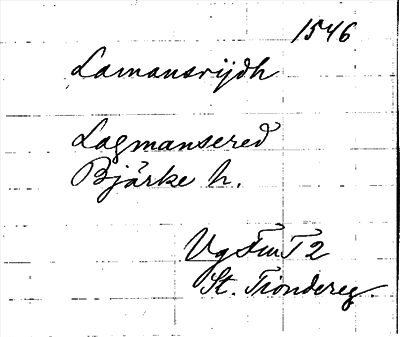 1546
Lamansrijdh
Lagmansered
Bjärke h.
Vg FmT 2
St. Tiondereg.